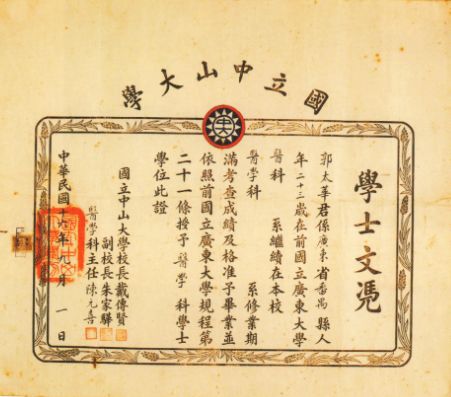 國立中山大學
學士文凴
郭太華君係廣東省番禺縣人
年二十三歲在前國立廣東大學
醫科 系繼續在本校
醫學科 系修業期
滿考查成績及格准予畢業並
依照前國立廣東大學規程第
二十一條授予醫學科學士
學位此證
國立中山大學校長戴傳賢
副校長朱家驊
醫學科主任陳元喜
中華民國十六年九月一日